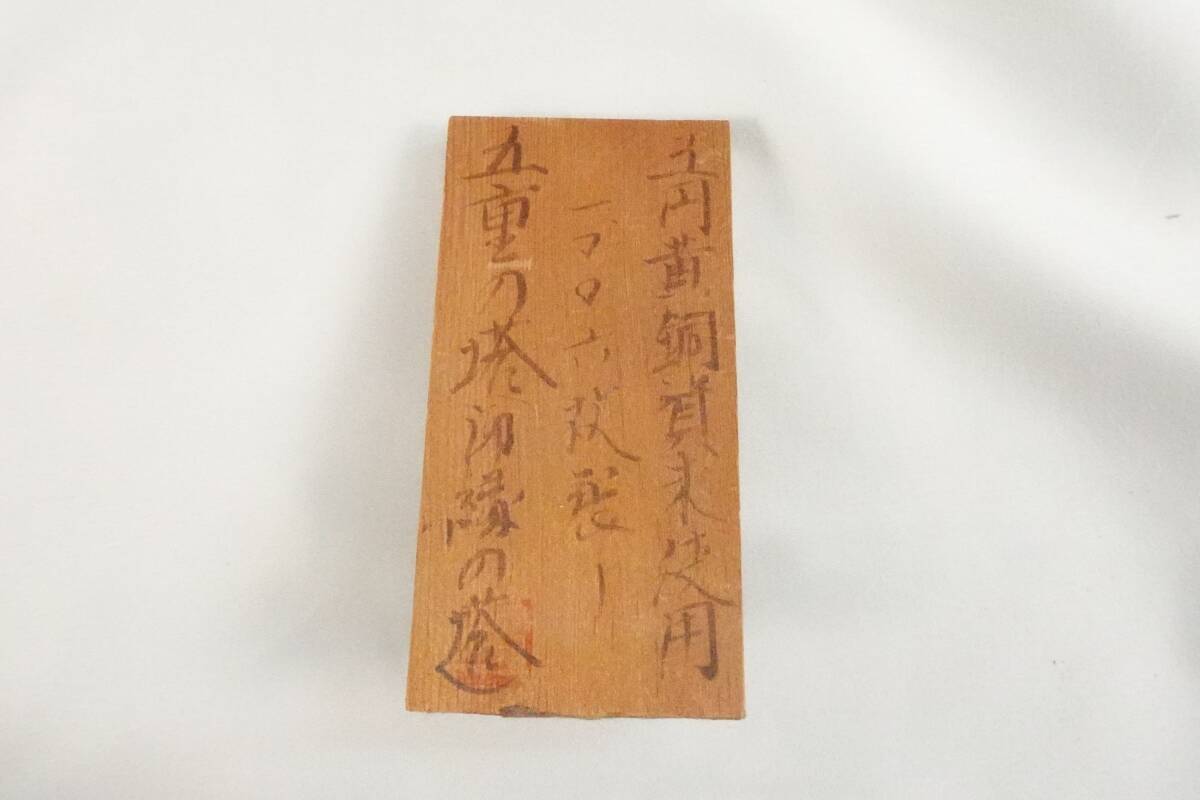 五円黄銅貨未使用
一〇〇六枚
五重の塔 御縁の塔